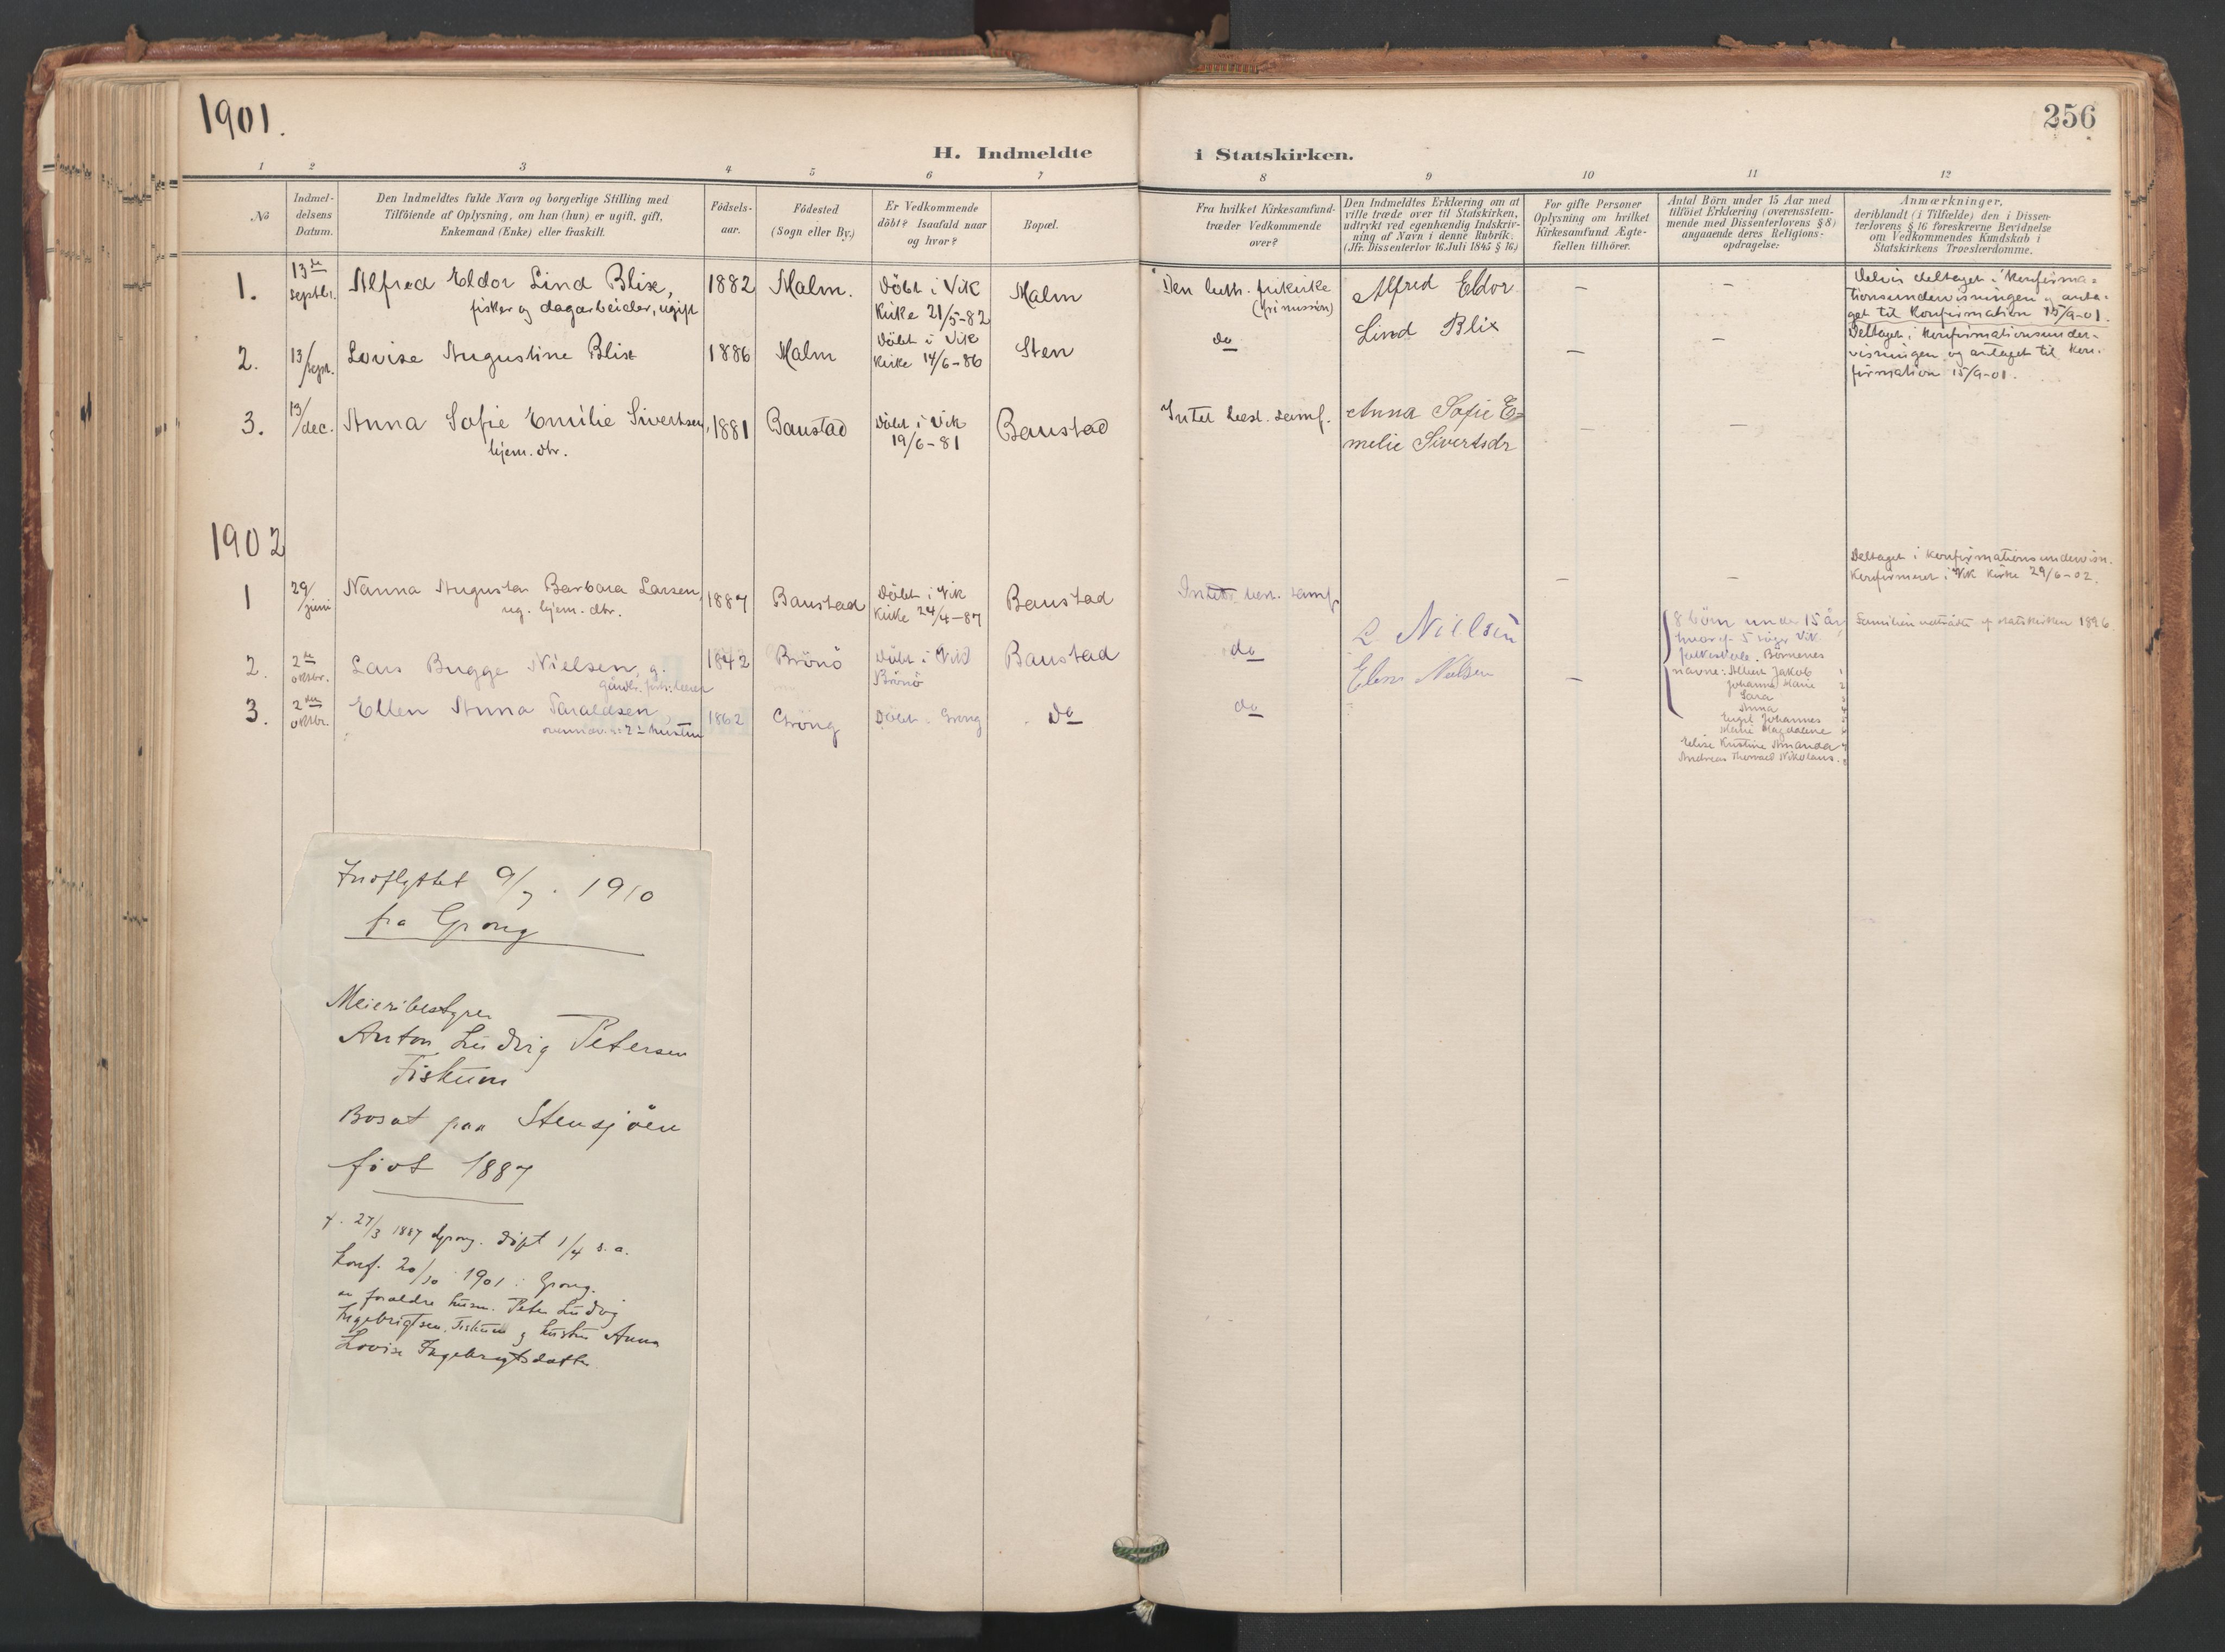 1901.
256
H. Indmeldte i Statskirken.
1 2 3 4 5 6 7 8 9 10 11 12
No
Indmel-
delsens
Datum.
Den Indmeldtes fulde Navn og borgerlige Stilling med
Tilföiende af Oplysning, om han (hun) er ugift, gift,
Enkemand (Enke) eller fraskilt.
Födsels-
aar.
Födested
(Sogn eller By.)
Er Vedkommende
döbt? Isaafald naar
og hvor?
Bopæl.
Fra hvilket Kirkesamfund
træder Vedkommende
over?
Den Indmeldtes Erklæring om at
ville træde over til Statskirken,
udtrykt ved egenhændig Indskriv-
ning af Navn i denne Rubrik.
(Jfr. Dissenterlov 16. Juli 1845 § 16.)
For gifte Personer
Oplysning om hvilket
Kirkesamfund Ægte-
fællen tilhörer.
Antal Börn under 15 Aar med
tilföiet Erklæring (overensstem-
mende med Dissenterlovens § 8)
angaaende deres Religions-
opdragelse:
Anmærkninger,
deriblandt (i Tilfælde) den i Dissen-
terlovens § 16 foreskrevne Bevidnelse
om Vedkommendes Kundskab i
Statskirkens Troeslærdomme.
1.
13de
septbr.
Alfred Eldor Lind Blix,
fisker og dagarbeider, ugift
1882
Malm.
Döbt i Vik
Kirke 21/5-82
Malm
Den luth. frikirke
(frimission)
Alfred Eldor
Lind Blix
–
–
Delvis deltaget i Konfirma-
tionsundervisningen og anta-
get til Konfirmation 15/9-01.
2.
13/sept.
Lovise Augustine Blix
1886
Malm
Döbt i Vik
Kirke 14/6-86
Sten
do
–
–
Deltaget i Konfirmationsunder-
visningen og antaget til Kon-
firmation 15/9-01.
3.
13/dec.
Anna Sofie Emilie Sivertsen,
hjem. dtr.
1881
Baustad
Döbt i Vik
19/6-81
Baustad
Intet best. samf.
Anna Sofie E-
melie Sivertsdr
–
–
1902
1
29/juni
Nanna Augusta Barbara Larsen,
ug. hjem. dtr.
1887
Baustad
Döbt i Vik
Kirke 24/4-87
Baustad
Intet best. samf.
–
–
Deltaget i Konfirmationsundervisn.
Konfirmeret i Vik Kirke 29/6-02.
2.
2de
oktbr.
Lars Bugge Nielsen, g.
1842
Brönö
Döbt i Vik
Brönö
Baustad
do
L Nielsen
–
8 börn under 15 år,
hvoraf 5 söger Vik
folkeskole. Börnenes
navne: Albert Jakob 1
Johanne Marie 2
Sara 3
Anna 4
Engel Johannes 5
Marie Magdalene 6
Elise Kristine Amanda 7
Andreas Thorvald Nikolaus. 8
Familien udtrådte af statskirken 1896.
3.
2den
oktbr.
Ellen Anna Taraldsen,
1862
Grong
Döbt i Grong
do
do
Elen Nielsen
Indflyttet 9/7. 1910
fra Grong
Meieribestyrer
Anton Ludvig Petersen
Fiskum
Bosat paa Stensjöen
født 1887
f. 27/3 1887 Grong. døpt 1/4 s. a.
Konf. 20/10 1901 i Grong.
av foraldre husm. Peter Ludvig
Ingebrigtsen, Fiskum og hustru Anna
Lovise Ingebrigtsdatter